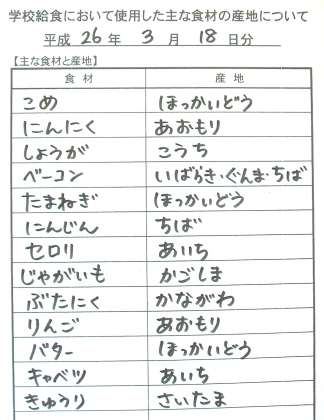 学校給食において使用した主な食材の産地について
平成 26 年 3 月 18 日分
【主な食材と産地】
食材 産地
こめ ほっかいどう
にんにく あおもり
しょうが こうち
ベーコン いばらき・ぐんま・ちば
たまねぎ ほっかいどう
にんじん ちば
セロリ あいち
じゃがいも かごしま
ぶたにく かながわ
りんご あおもり
バター ほっかいどう
キャベツ あいち
きゅうり さいたま